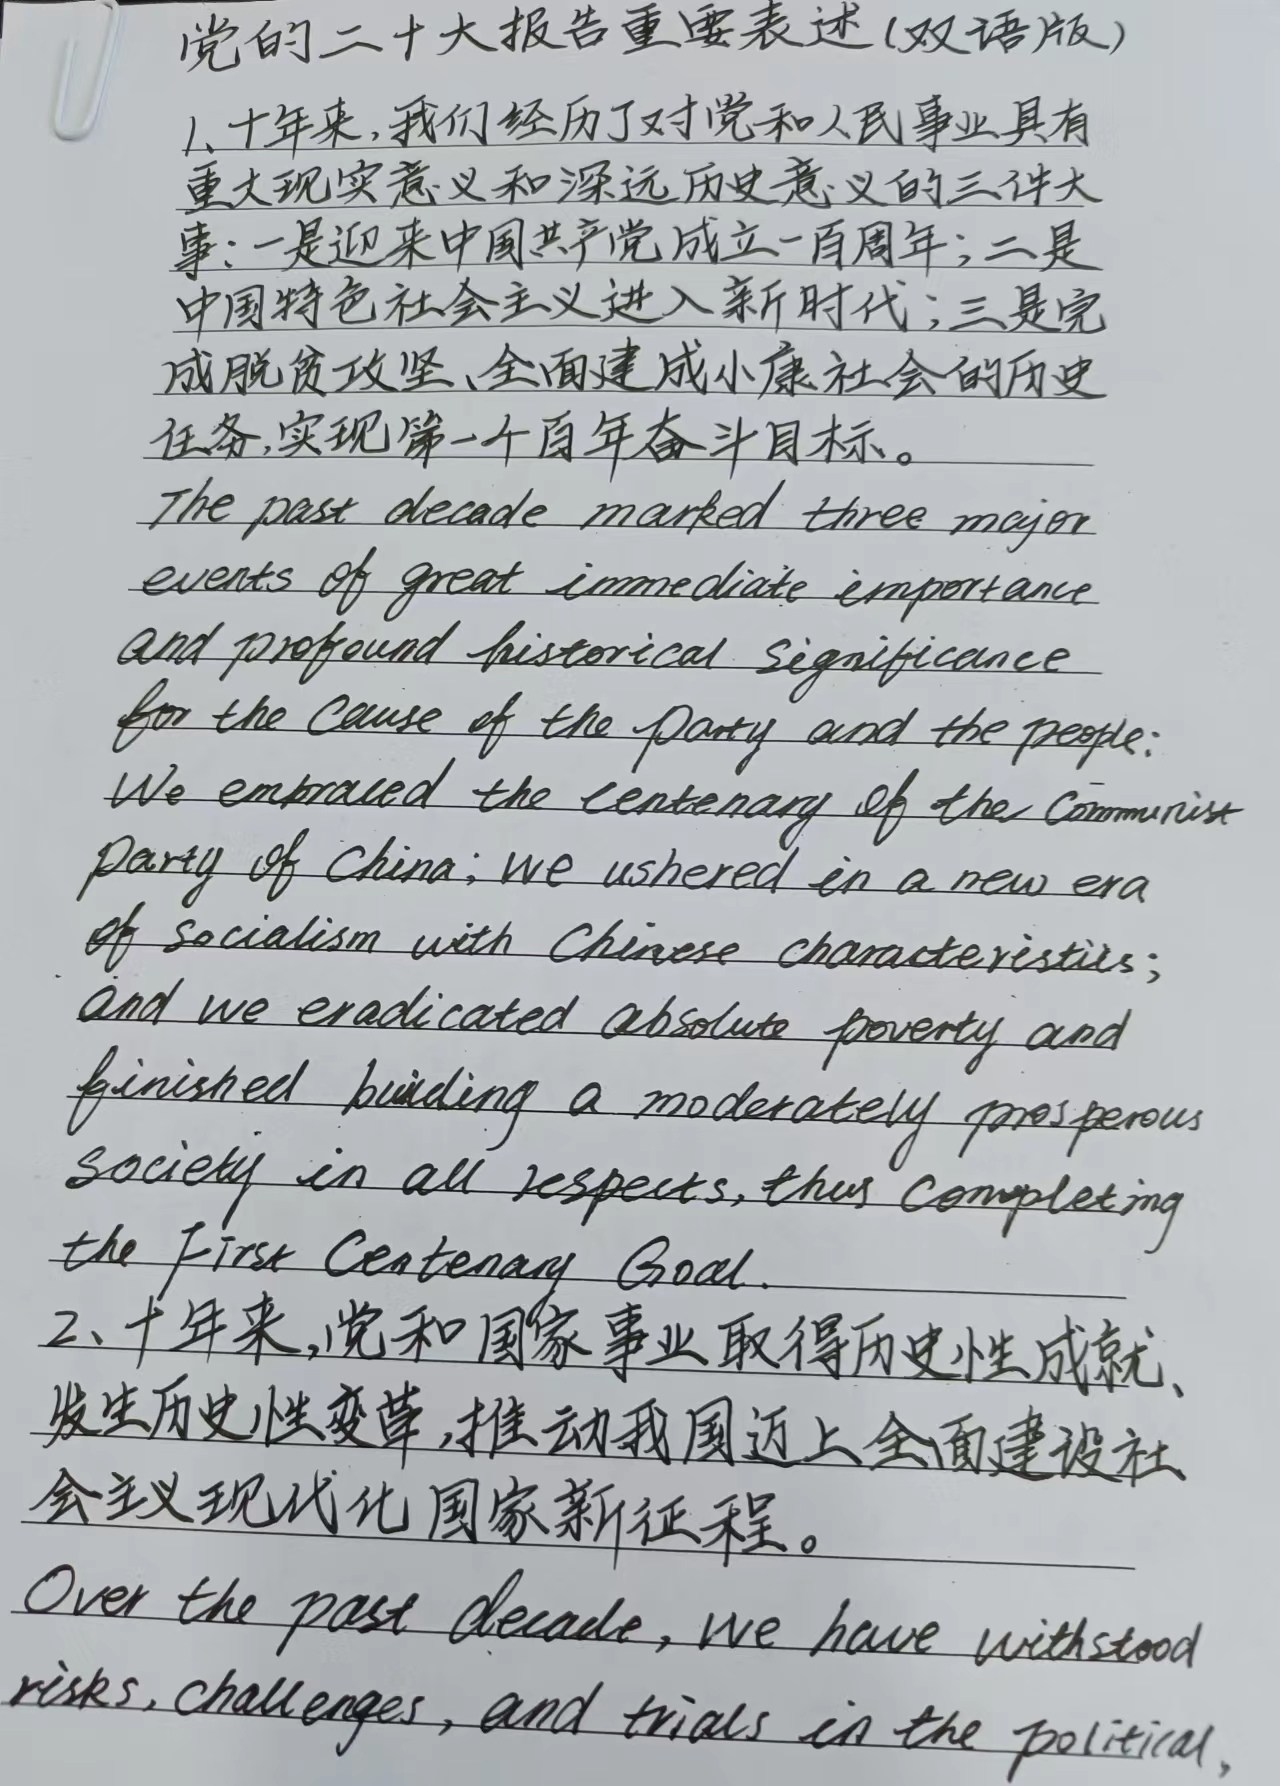 党的二十大报告重要表述(双语版)
1、十年来,我们经历了对党和人民事业具有
重大现实意义和深远历史意义的三件大
事:一是迎来中国共产党成立一百周年;二是
中国特色社会主义进入新时代;三是完
成脱贫攻坚、全面建成小康社会的历史
任务,实现第一个百年奋斗目标。
The past decade marked three major
events of great immediate importance
and profound historical significance
for the cause of the Party and the people:
We embraced the centenary of the Communist
Party of China; we ushered in a new era
of socialism with Chinese characteristics;
and we eradicated absolute poverty and
finished building a moderately prosperous
society in all respects, thus completing
the First Centenary Goal.
2、十年来,党和国家事业取得历史性成就、
发生历史性变革,推动我国迈上全面建设社
会主义现代化国家新征程。
Over the past decade, we have withstood
risks, challenges, and trials in the political,